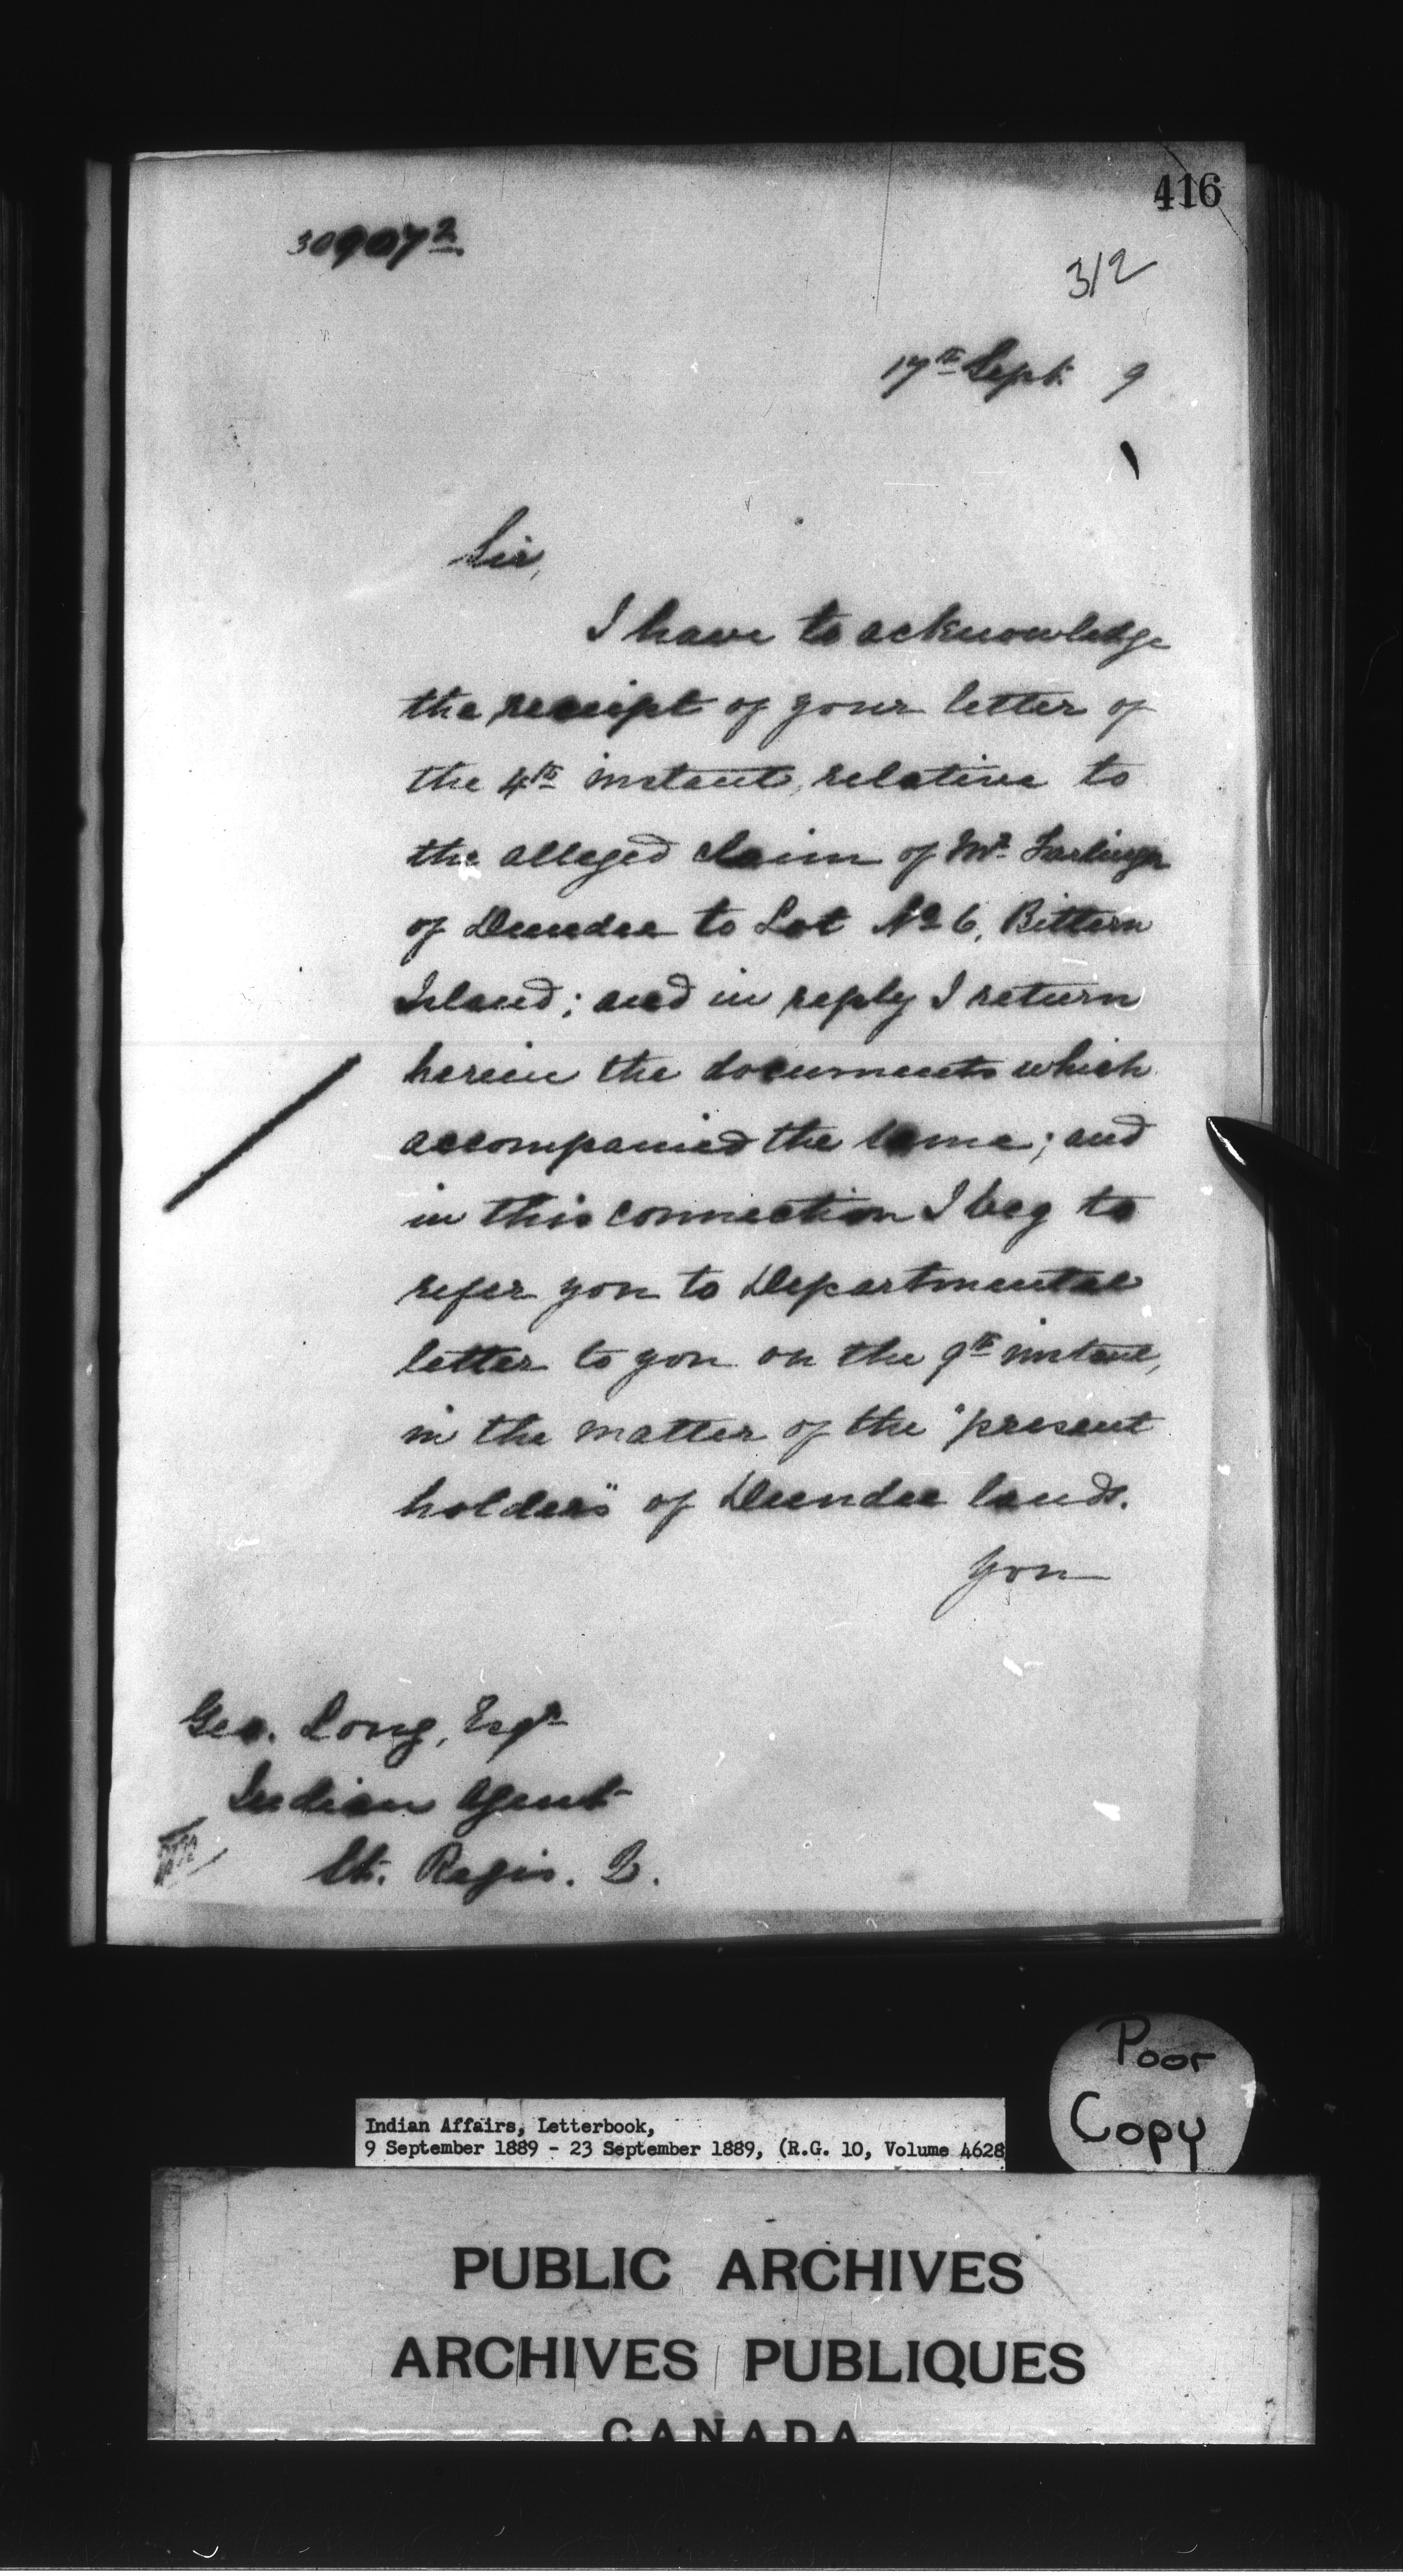 416
30907²
312
17th Sept. 9
Sir,
I have to acknowledge
the receipt of your letter of
the 4th instant, relative to
the alleged claim of Mr.
of Dundee to Lot No 6, Bittern
Island; and in reply I return
herein the documents which
accompanied the same; and
in this connection I beg to
refer you to Departmental
letter to you on the 9th instant,
in the matter of the "present
holders" of Dundee lands.
You
Geo. Long, Esqr
Indian Agent
St. Regis. Q.
Poor
Copy
Indian Affairs, Letterbook,
9 September 1889 - 23 September 1889, (R.G. 10, Volume 4628
PUBLIC ARCHIVES
ARCHIVES PUBLIQUES
CANADA